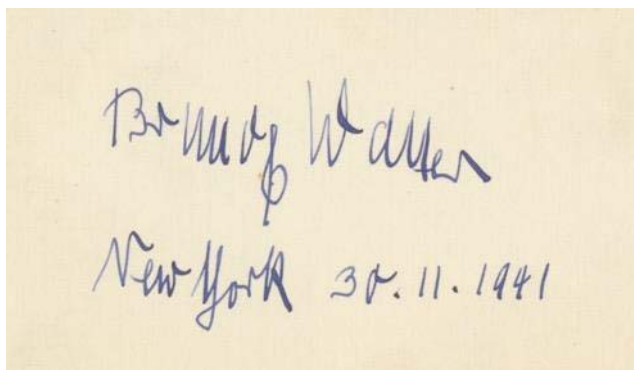 Bruno Walter
New York 30.11.1941